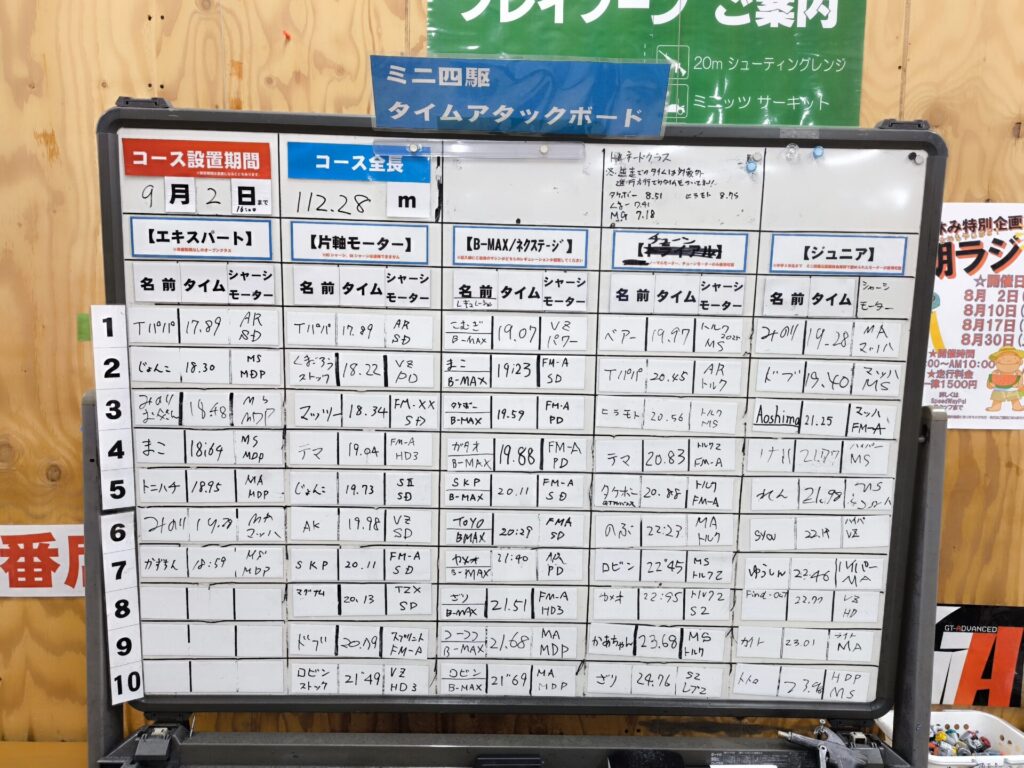 プレイゾーン ご案内
20m シューティングレンジ
ミニッツ サーキット
ミニ四駆
タイムアタックボード
コース設置期間
9月2日まで
コース全長
112.28 m
タケボー 8.51 ヒラモト 8.75
M.G 7.18
【エキスパート】
【片軸モーター】
【B-MAX/ネクステージ】
チューン
【ジュニア】
名前 タイム シャーシ モーター
名前 タイム シャーシ モーター
名前 タイム シャーシ モーター
名前 タイム シャーシ モーター
名前 タイム シャーシ モーター
1 Tパパ 17.89 AR SD
Tパパ 17.89 AR SD
こむぎ B-MAX 19.07 VZ パワー
ベアー 19.97 トルク MS
みのり 19.28 MA マッハ
2 じょんこ 18.30 MS MDP
くまごろう ストック 18.22 VZ PD
まこ B-MAX 19:23 FM-A SD
Tパパ 20.45 AR トルク
ドブ 19.40 マッハ MS
3 みのり お父さん 18.48 MS MDP
マッツー 18.34 FM-XX SD
タケボー B-MAX 19.59 FM-A PD
ヒラモト 20.56 トルク MS
Aoshima 21.25 マッハ FM-A
4 まこ 18:69 MS MDP
テマ 19.04 FM-A HD3
カタオ B-MAX 19.88 FM-A PD
テマ 20.83 トルク2 FM-A
21.77 ハイパー MS
5 トニハチ 18.95 MA HDP
じょんこ 19.73 SII SD
SKP B-MAX 20.11 FM-A SD
タケボー 20.88 トルク FM-A
れん 21.98
6 みのり 19.28 MA マッハ
AK 19.98 VZ SD
TOYO BMAX 20:29 FMA SD
のぶ 22:23 MA トルク
syou 22.19 VZ
7 かずちん 18:59 MS MDP
SKP 20.11 FM-A SD
カメオ B-MAX 21:40 AR PD
ロビン 22"45 MS トルク2
ゆうしん 22.46 ハイパー MA
8
マグナム 20.13 TZX SD
ざり B-MAX 21.51 FM-A HD3
カメオ 22"95 トルク2 S2
22.77 VZ HD
9
ドブ 20.79 スプリント FM-A
コーフク B-MAX 21.68 MA MDP
かあちゃん 23.68 MS トルク
カイト 23.01 ライト MA
10
ロビン ストック 21"49 VZ HD3
ロビン B-MAX 21"69 MA MDP
ざり 24.76 S2 レブ2
23.96 HDP MS
休み特別企画
期ラジ
☆開催日
8月 2日
8月10日
8月17日
8月30日
★開催時間
:00～AM10:00
★走行料金
一律1500円
番
GT-ADVANCED